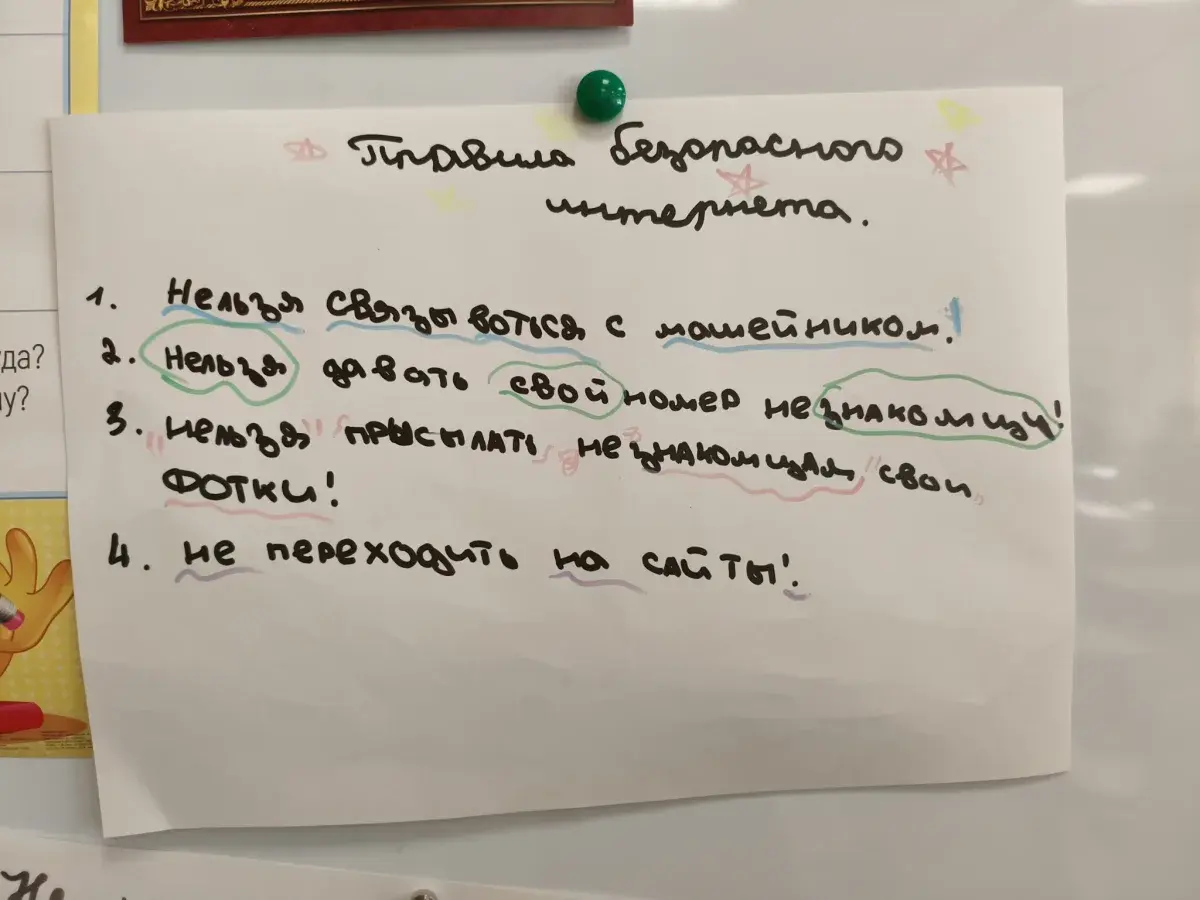 Правила безопасного
интернета.
1. Нельзя связываться с мошейником!
2. нельзя давать свой номер незнакомцу!
3. "нельзя" прысылать незнакомцам свои
ФОТКИ!
4. не переходить на сайты!
да?
му?
Не